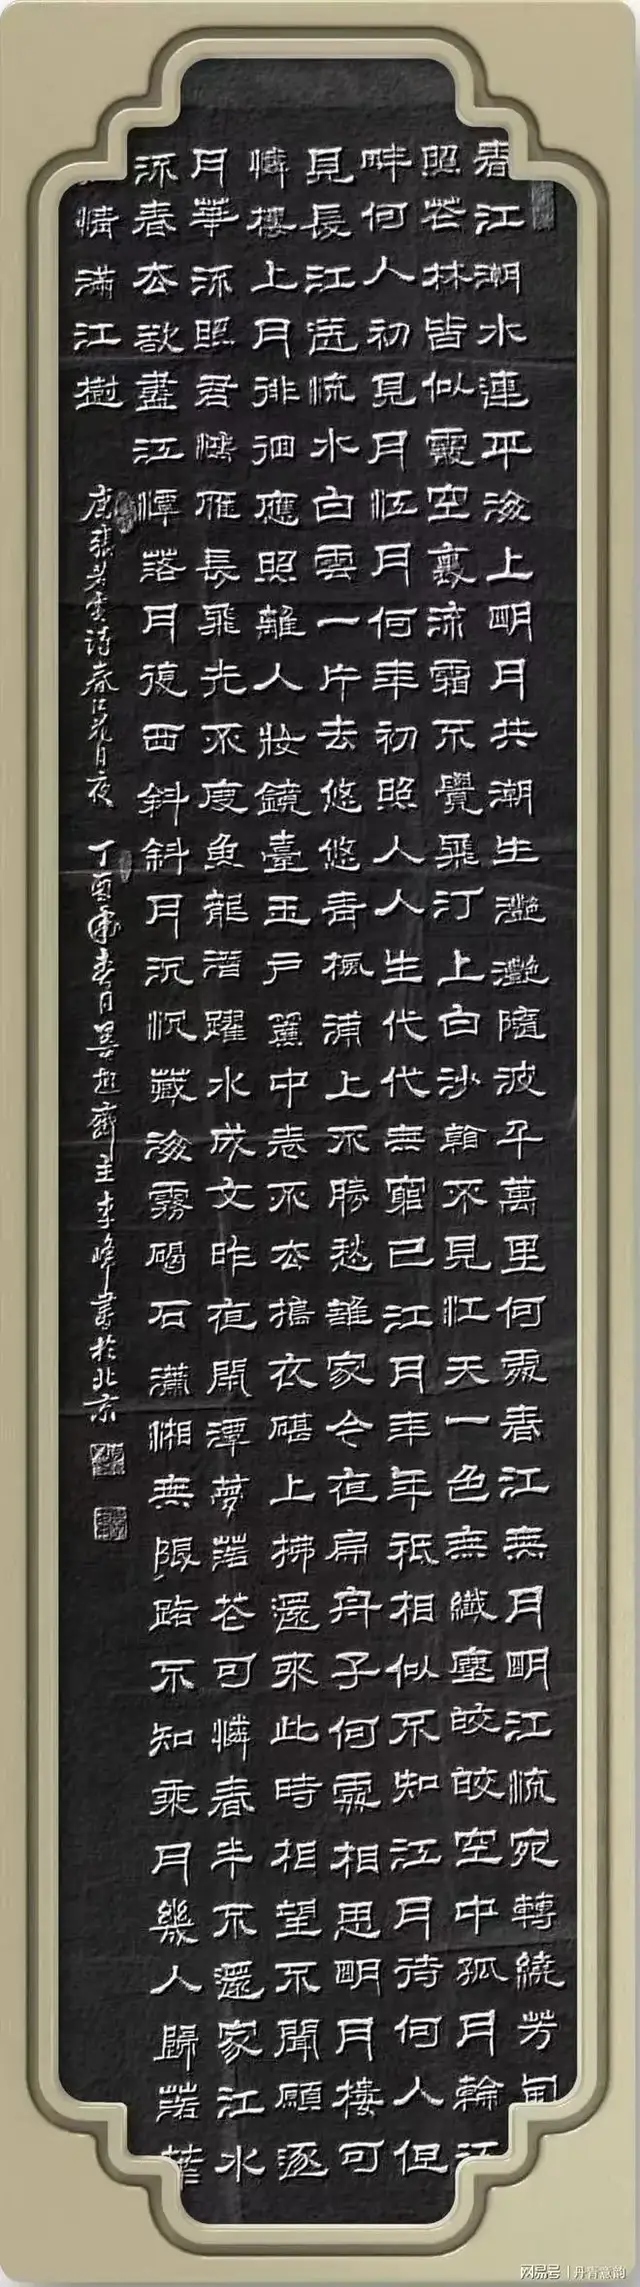 春江潮水連平海上明月共潮生灧灧隨波千萬里何處春江無月明江流宛轉繞芳甸
照花林皆似霰空裏流霜不覺飛汀上白沙看不見江天一色無纖塵皎皎空中孤月輪江
畔何人初見月江月何年初照人人生代代無窮已江月年年祇相似不知江月待何人但
見長江送流水白雲一片去悠悠青楓浦上不勝愁誰家今夜扁舟子何處相思明月樓可
憐樓上月徘徊應照離人妝鏡臺玉戶簾中卷不去搗衣碪上拂還來此時相望不聞願逐
月華流照君鴻雁長飛光不度魚龍潛躍水成文昨夜閒潭夢落花可憐春半不還家江水
流春去欲盡江潭落月復西斜斜月沉沉藏海霧碣石瀟湘無限路不知乘月幾人歸落
情滿江樹
唐張若虛詩春江花月夜
丁酉年春月齋主李峰書於北京
网易号|丹青意韵